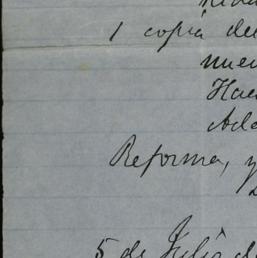 1 copia de
nue
Ha
Ad
Reforma, y
5 de Julio de